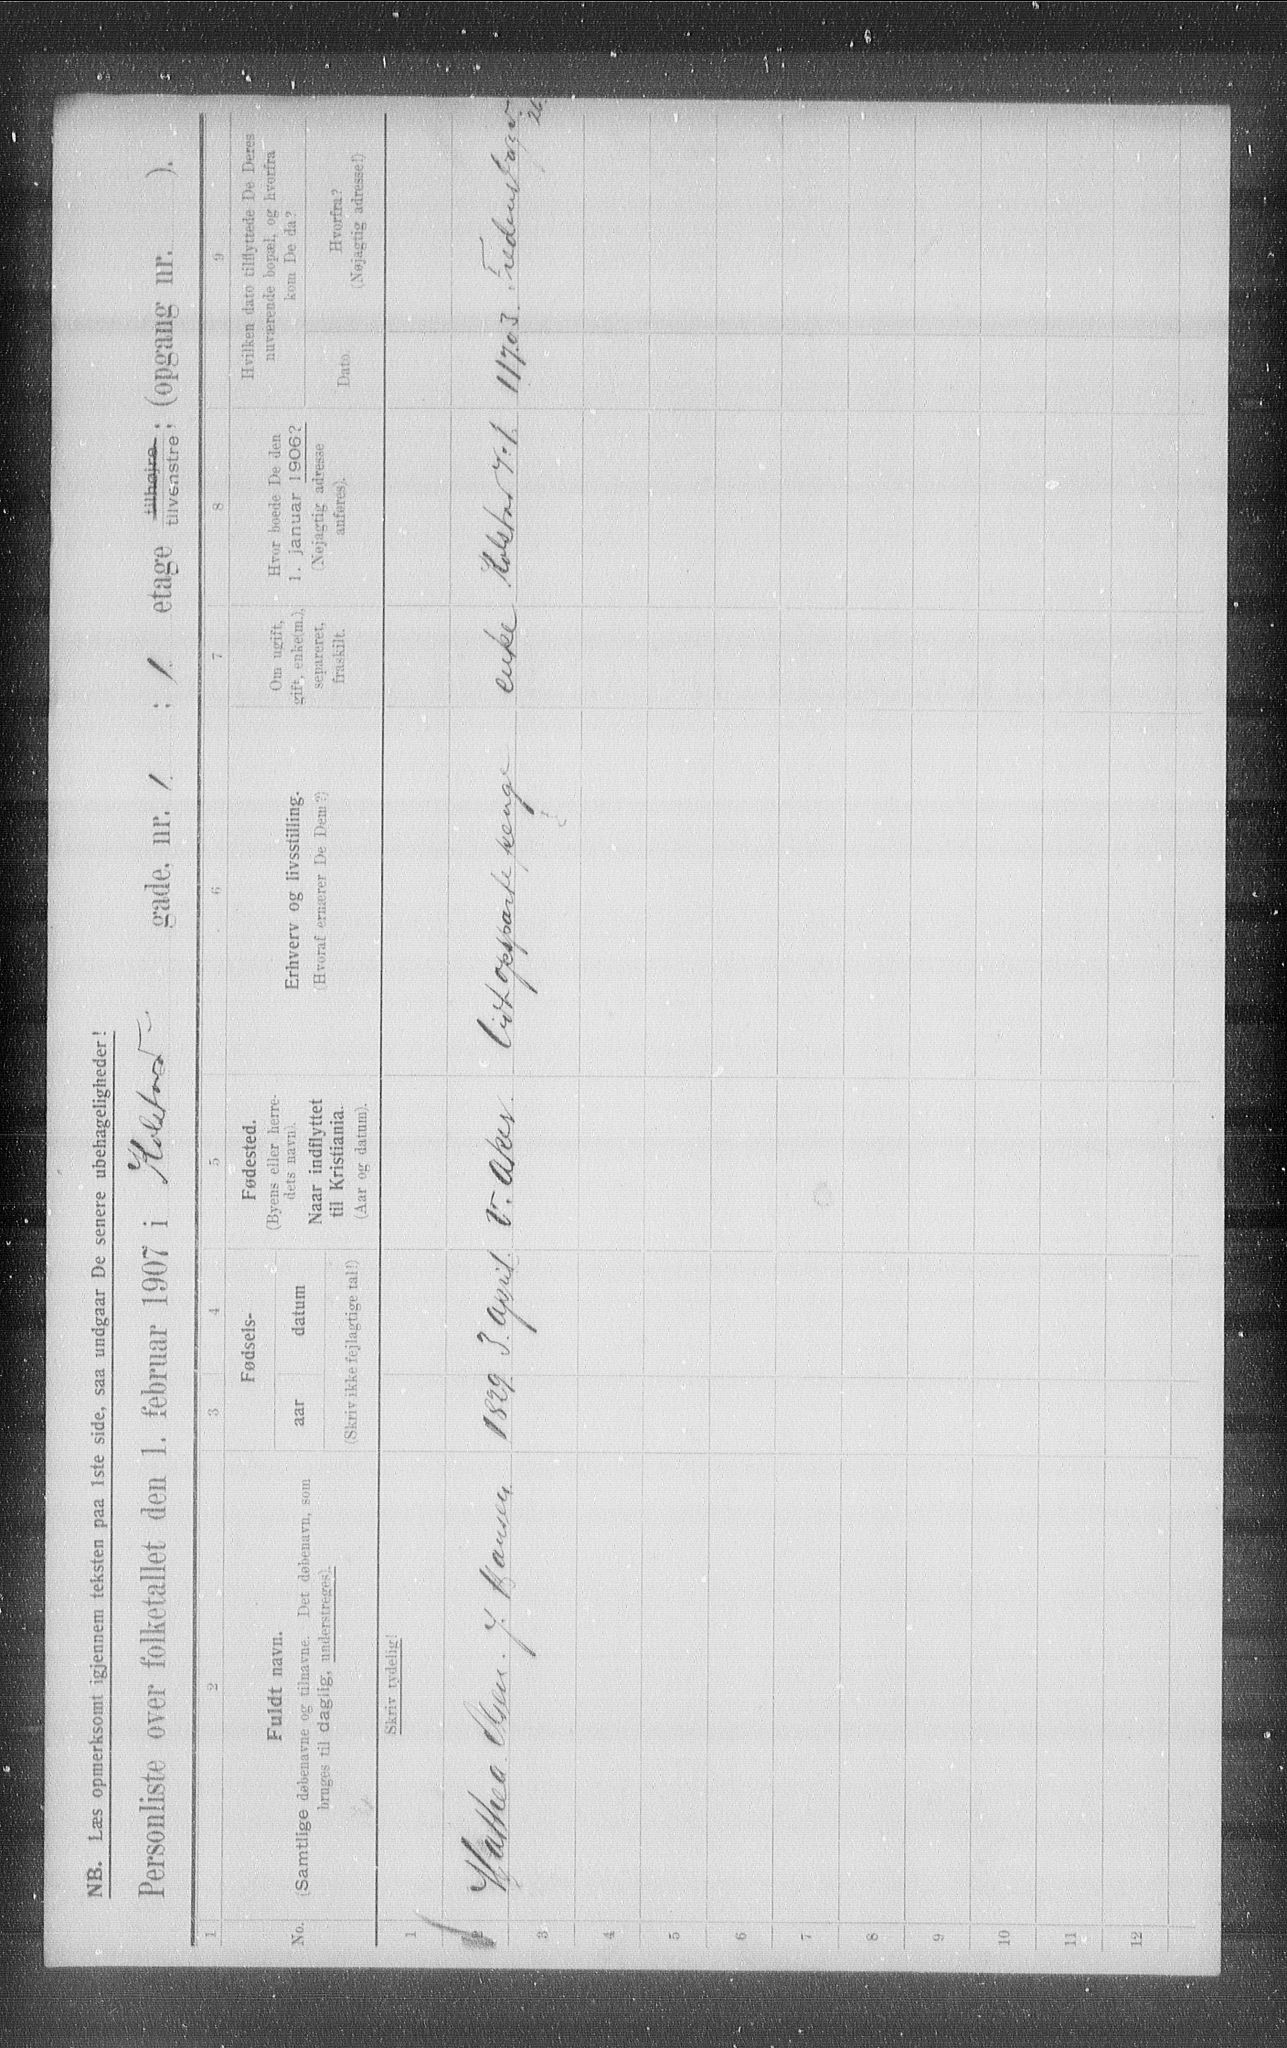 NB. Læs opmerksomt igjennem teksten paa 1ste side, saa undgaar De senere ubehageligheder!
Personliste over folketallet den 1. februar 1907 i Kolstad gade, nr. 1 ; 1 etage tilhøjre tilvenstre ; (opgang nr. ).
1 2 3 4 5 6 7 8 9
No.
Fuldt navn.
(Samtlige døbenavne og tilnavne. Det døbenavn, som
bruges til daglig, understreges).
Fødsels-
aar datum
(Skriv ikke fejlagtige tal!)
Fødested.
(Byens eller herre-
dets navn).
Naar indflyttet
til Kristiania.
(Aar og datum).
Erhverv og livsstilling.
(Hvoraf ernærer De Dem?)
Om ugift,
gift, enke(m.),
separeret,
fraskilt.
Hvor boede De den
1. januar 1906?
(Nøjagtig adresse
anføres).
Hvilken dato tilflyttede De Deres
nuværende bopæl, og hvorfra
kom De da?
Dato.
Hvorfra?
(Nøjagtig adresse!)
Skriv tydelig!
1
2 Mathea Olsen. f Hansen 1829 3. April. V. Aker. lidt opsparte penge enke Kolstad 1703.
26
3
4
5
6
7
8
9
10
11
12